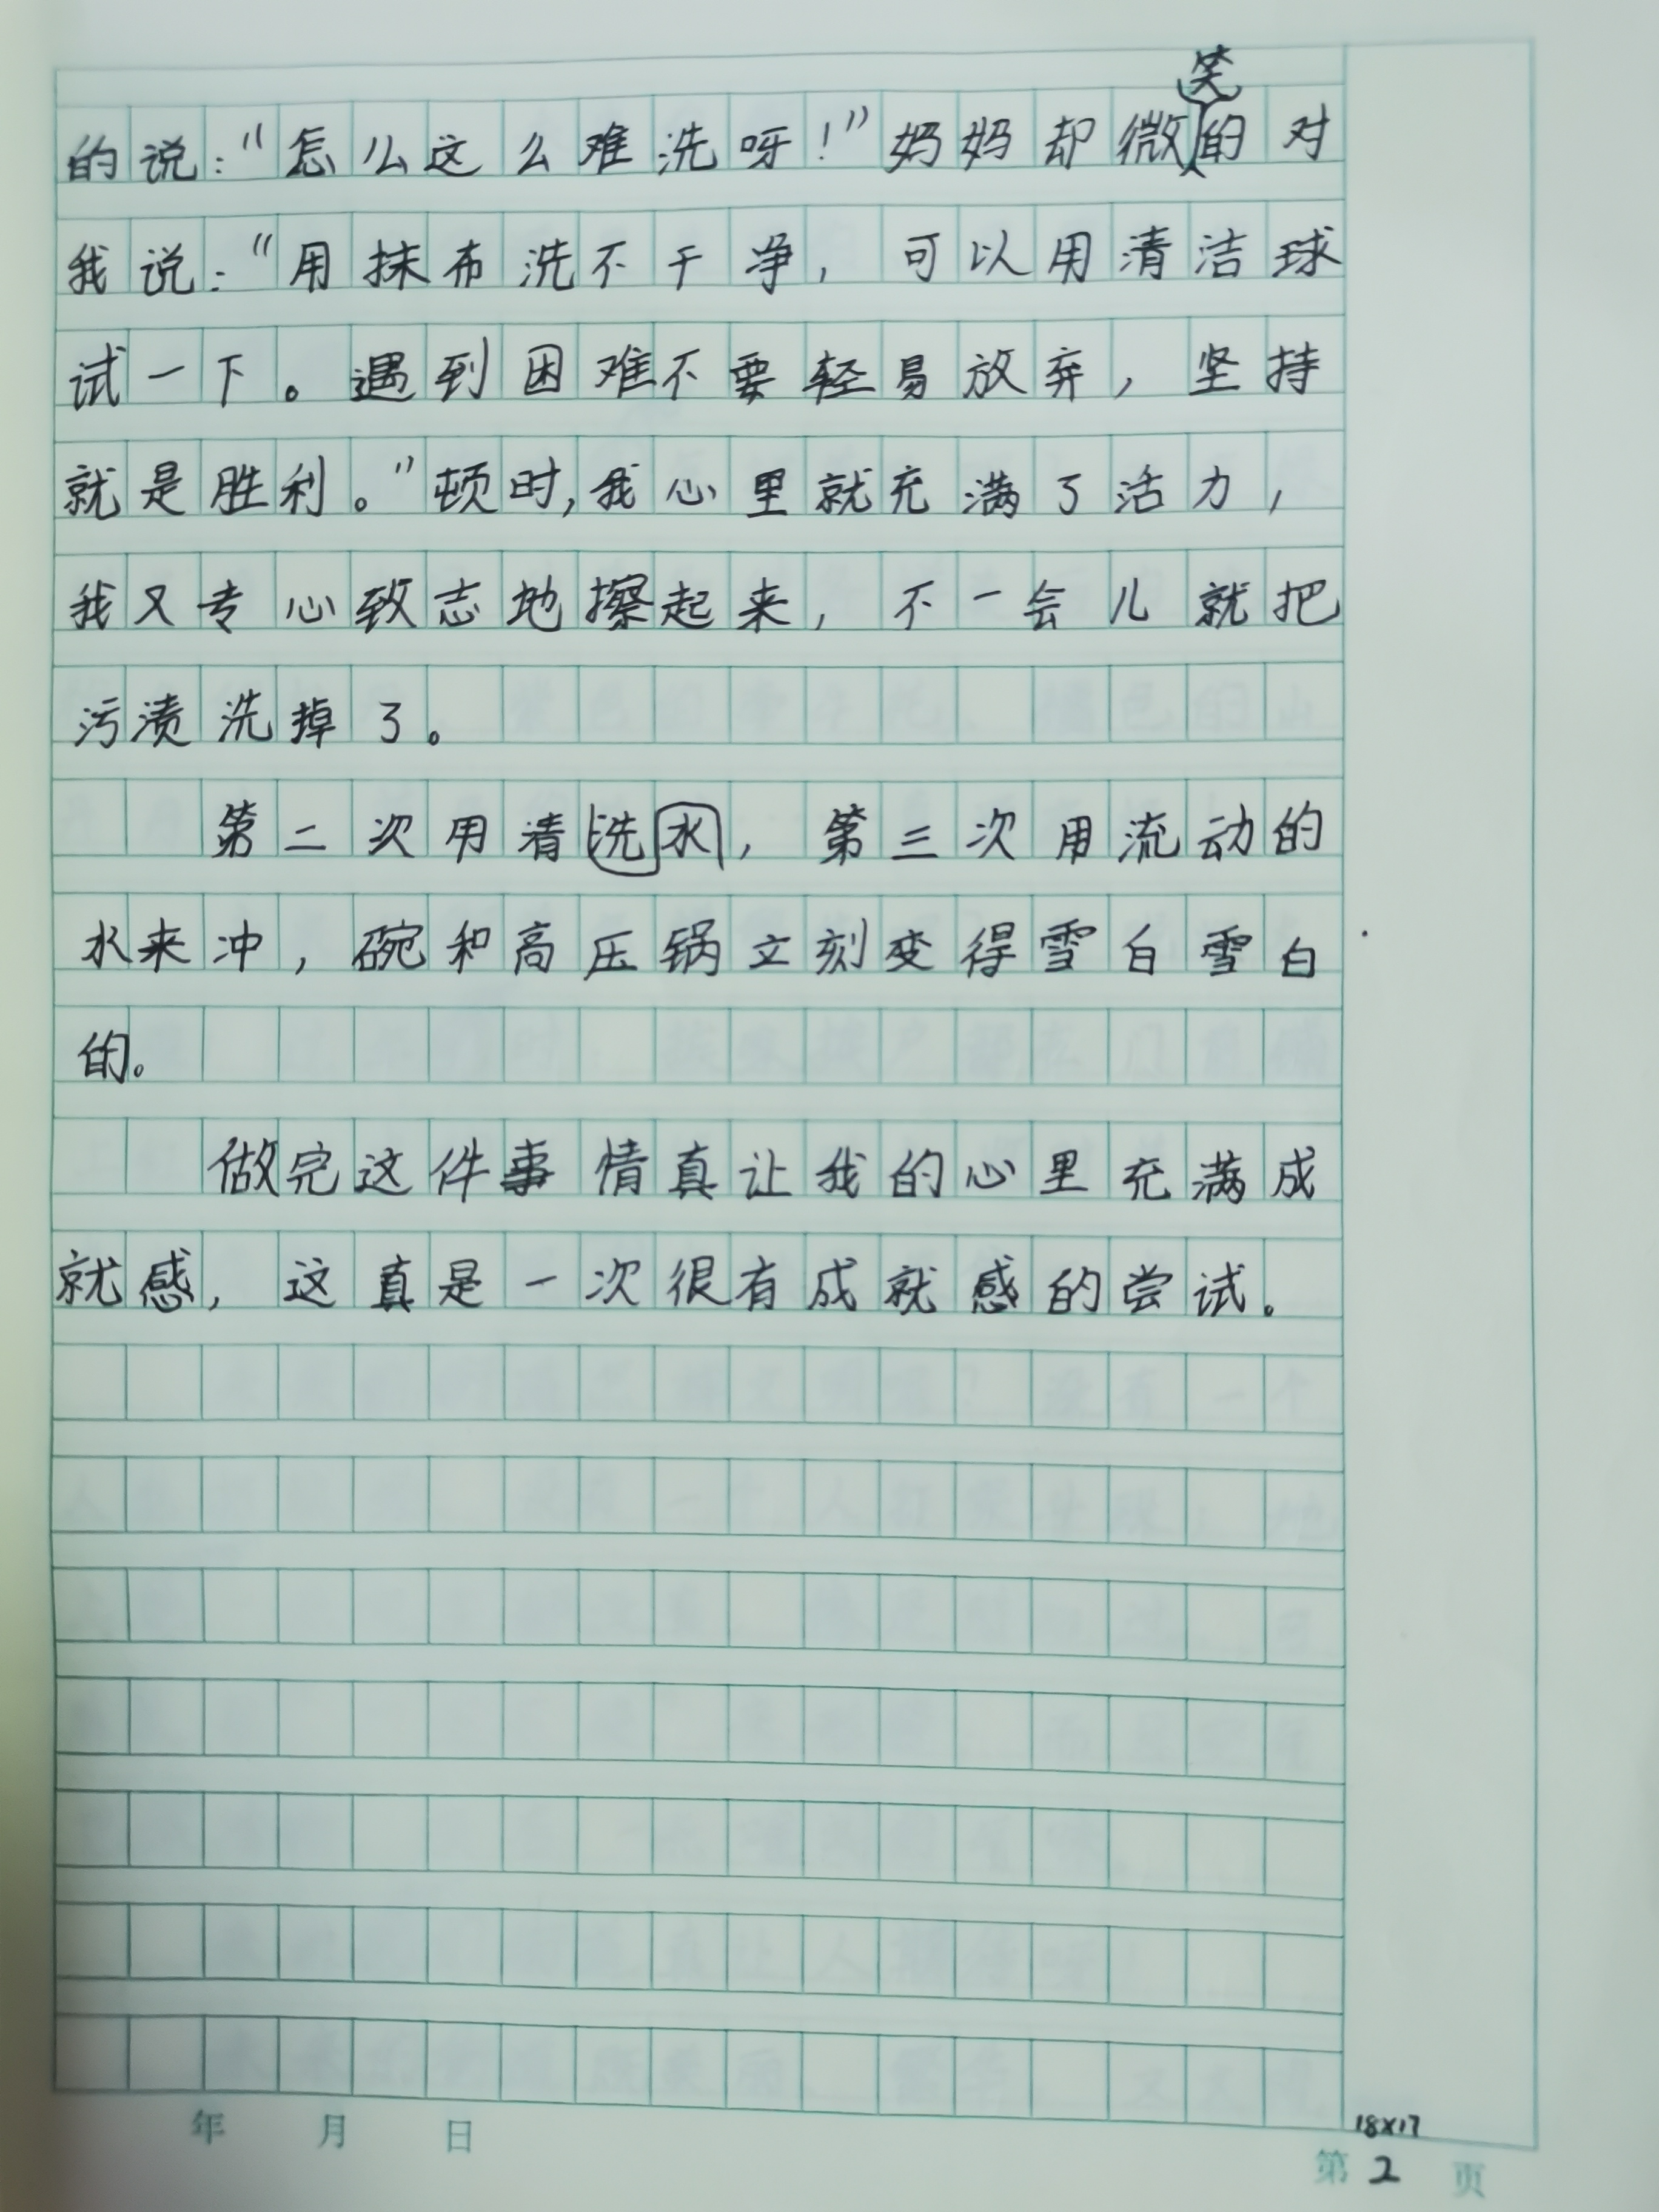 的说：“怎么这么难洗呀！”妈妈却微笑的对
我说：“用抹布洗不干净，可以用清洁球
试一下。遇到困难不要轻易放弃，坚持
就是胜利。”顿时，我心里就充满了活力，
我又专心致志地擦起来，不一会儿就把
污渍洗掉了。
第二次用清洗水，第三次用流动的
水来冲，碗和高压锅立刻变得雪白雪白
的。
做完这件事情真让我的心里充满成
就感，这真是一次很有成就感的尝试。
年 月 日
18×17
第 2 页